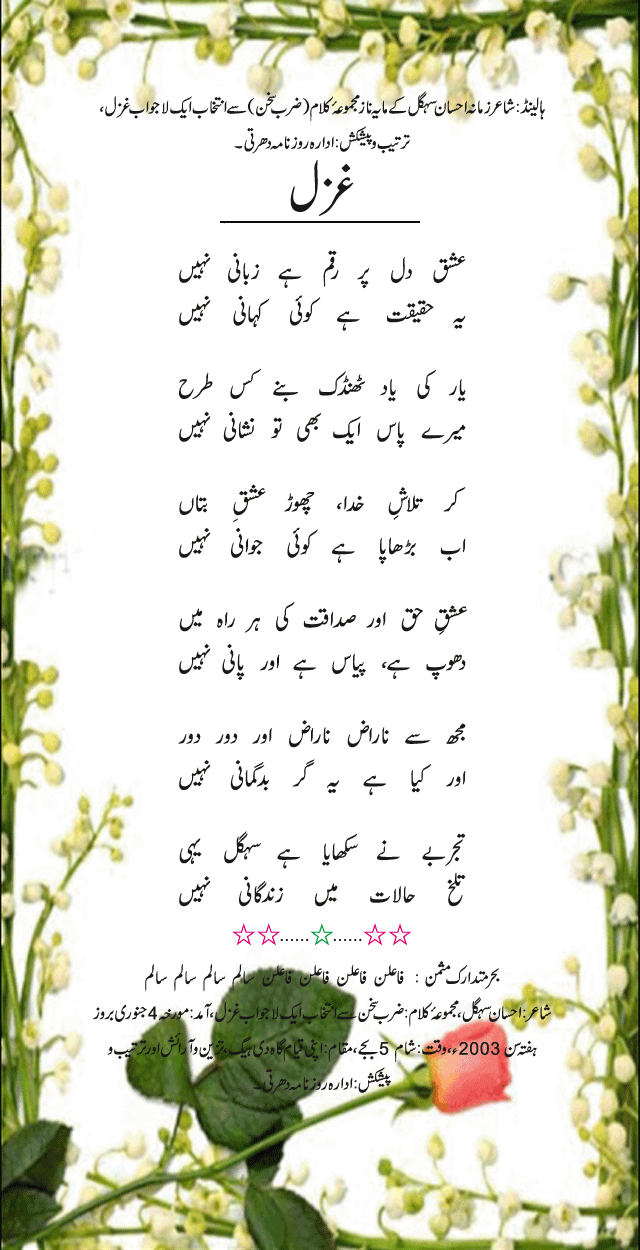 ہالینڈ: شاعر زمانہ احسان سہگل کے مایہ ناز مجموعۂ کلام (ضرب سخن) سے انتخاب ایک لاجواب غزل،
ترتیب و پیشکش: ادارہ روزنامہ دھرتی۔
غزل
عشق دل پر رقم ہے زبانی نہیں
یہ حقیقت ہے کوئی کہانی نہیں
یار کی یاد ٹھنڈک بنے کس طرح
میرے پاس ایک بھی تو نشانی نہیں
کر تلاشِ خدا، چھوڑ عشقِ بتاں
اب بڑھاپا ہے کوئی جوانی نہیں
عشقِ حق اور صداقت کی ہر راہ میں
دھوپ ہے، پیاس ہے اور پانی نہیں
مجھ سے ناراض ناراض اور دور دور
اور کیا ہے یہ گر بدگمانی نہیں
تجربے نے سکھایا ہے سہگل یہی
تلخ حالات میں زندگانی نہیں
☆☆......☆......☆☆
بحر متدارک مثمن : فاعلن فاعلن فاعلن فاعلن سالم سالم سالم سالم
شاعر: احسان سہگل، مجموعۂ کلام: ضرب سخن سے انتخاب ایک لاجواب غزل، آمد: مورخہ 4 جنوری بروز
ہفتہ سن 2003ء، وقت: شام 5 بجے، مقام: اپنی قیام گاہ دی ہیگ، تزئین و آرائش اور ترتیب و
پیشکش: ادارہ روزنامہ دھرتی۔